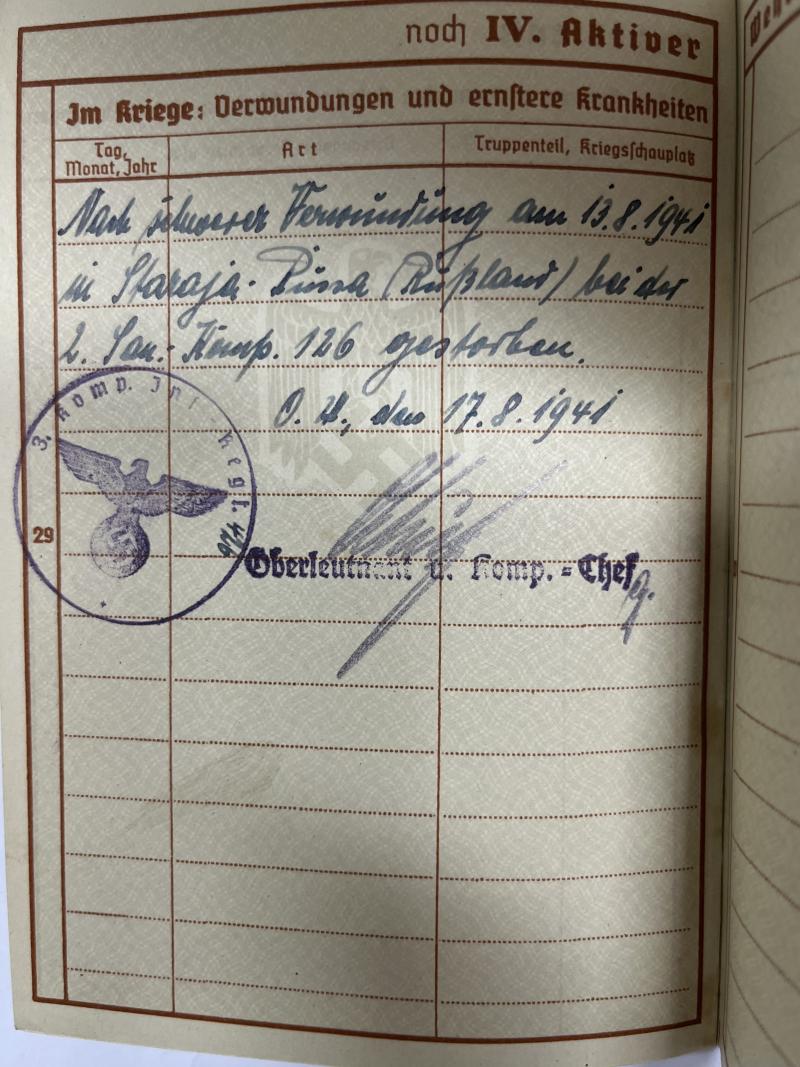 noch IV. Aktiver
Im Kriege: Verwundungen und ernstere Krankheiten
Tag, Monat, Jahr
Art
Truppenteil, Kriegsschauplatz
Nach schwerer Verwundung am 13.8.1941
in Staraja-Russa (Rußland) bei der
2. San.-Komp. 126 gestorben.
O.U., den 17.8.1941
3. Komp. Inf. Regt.
29
Oberleutnant u. Komp.-Chef